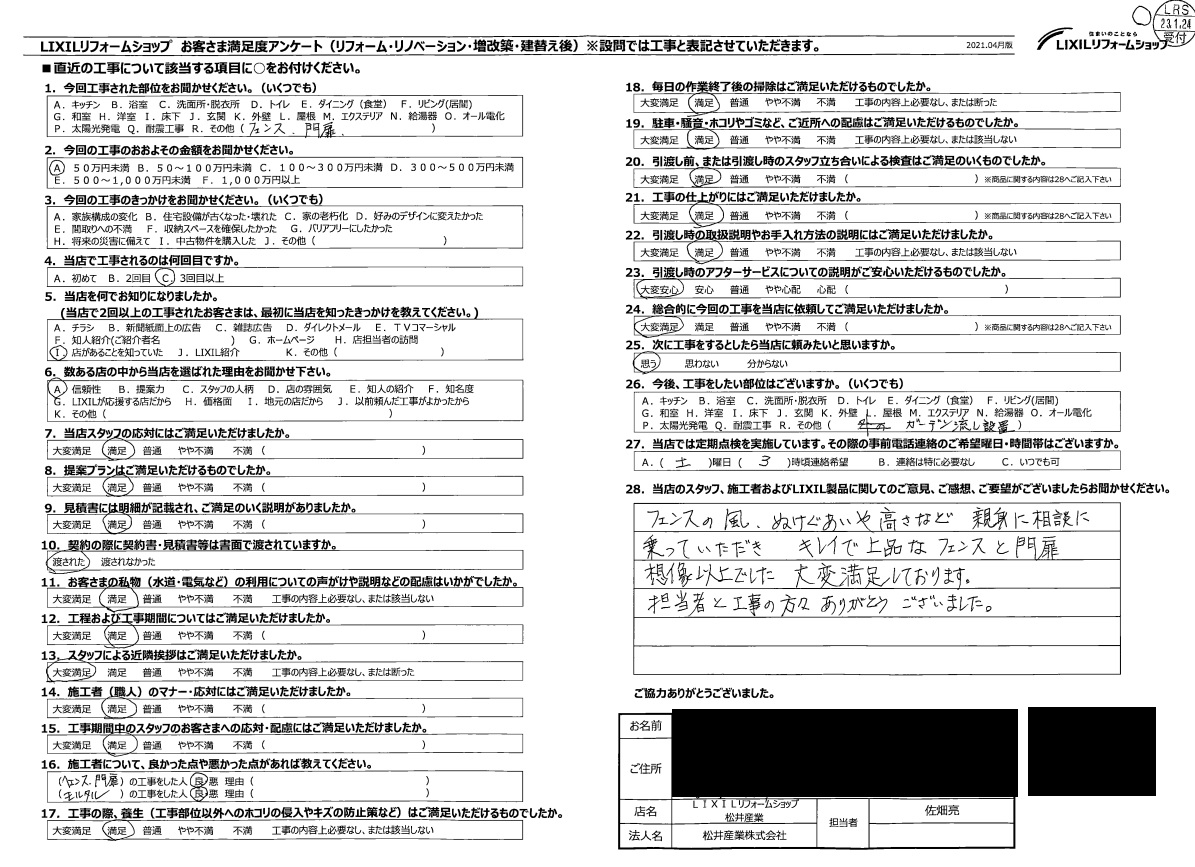 LRS
23.1.24
受付
LIXILリフォームショップ お客さま満足度アンケート（リフォーム・リノベーション・増改築・建替え後）※設問では工事と表記させていただきます。
2021.04月版
住まいのことなら
LIXILリフォームショップ
■直近の工事について該当する項目に○をお付けください。
1．今回工事された部位をお聞かせください。（いくつでも）
A．キッチン B．浴室 C．洗面所・脱衣所 D．トイレ E．ダイニング（食堂） F．リビング(居間)
G．和室 H．洋室 I．床下 J．玄関 K．外壁 L．屋根 M．エクステリア N．給湯器 O．オール電化
P．太陽光発電 Q．耐震工事 R．その他（フェンス、門扉、）
2．今回の工事のおおよその金額をお聞かせください。
A．５０万円未満 B．５０～１００万円未満 C．１００～３００万円未満 D．３００～５００万円未満
E．５００～１,０００万円未満 F．１,０００万円以上
3．今回の工事のきっかけをお聞かせください。（いくつでも）
A．家族構成の変化 B．住宅設備が古くなった・壊れた C．家の老朽化 D．好みのデザインに変えたかった
E．間取りへの不満 F．収納スペースを確保したかった G．バリアフリーにしたかった
H．将来の災害に備えて I．中古物件を購入した J．その他（ ）
4．当店で工事されるのは何回目ですか。
A．初めて B．2回目 C．3回目以上
5．当店を何でお知りになりましたか。
(当店で2回以上の工事されたお客さまは、最初に当店を知ったきっかけを教えてください。)
A．チラシ B．新聞紙面上の広告 C．雑誌広告 D．ダイレクトメール E．ＴＶコマーシャル
F．知人紹介(ご紹介者名 ) G．ホームページ H．店担当者の訪問
I．店があることを知っていた J．LIXIL紹介 K．その他（ ）
6．数ある店の中から当店を選ばれた理由をお聞かせ下さい。
A．信頼性 B．提案力 C．スタッフの人柄 D．店の雰囲気 E．知人の紹介 F．知名度
G．LIXILが応援する店だから H．価格面 I．地元の店だから J．以前頼んだ工事がよかったから
K．その他（ ）
7．当店スタッフの応対にはご満足いただけましたか。
大変満足 満足 普通 やや不満 不満 （ ）
8．提案プランはご満足いただけるものでしたか。
大変満足 満足 普通 やや不満 不満 （ ）
9．見積書には明細が記載され、ご満足のいく説明がありましたか。
大変満足 満足 普通 やや不満 不満 （ ）
10．契約の際に契約書・見積書等は書面で渡されていますか。
渡された 渡されなかった
11．お客さまの私物（水道・電気など）の利用についての声がけや説明などの配慮はいかがでしたか。
大変満足 満足 普通 やや不満 不満 工事の内容上必要なし、または該当しない
12．工程および工事期間についてはご満足いただけましたか。
大変満足 満足 普通 やや不満 不満 （ ）
13．スタッフによる近隣挨拶はご満足いただけましたか。
大変満足 満足 普通 やや不満 不満 工事の内容上必要なし、または断った
14．施工者（職人）のマナー・応対にはご満足いただけましたか。
大変満足 満足 普通 やや不満 不満 （ ）
15．工事期間中のスタッフのお客さまへの応対・配慮にはご満足いただけましたか。
大変満足 満足 普通 やや不満 不満 （ ）
16．施工者について、良かった点や悪かった点があれば教えてください。
(フェンス、門扉) の工事をした人 良 悪 理由（ ）
(モルタル) の工事をした人 良 悪 理由（ ）
17．工事の際、養生（工事部位以外へのホコリの侵入やキズの防止策など）はご満足いただけるものでしたか。
大変満足 満足 普通 やや不満 不満 工事の内容上必要なし、または該当しない
18．毎日の作業終了後の掃除はご満足いただけるものでしたか。
大変満足 満足 普通 やや不満 不満 工事の内容上必要なし、または断った
19．駐車・騒音・ホコリやゴミなど、ご近所への配慮はご満足いただけるものでしたか。
大変満足 満足 普通 やや不満 不満 工事の内容上必要なし、または該当しない
20．引渡し前、または引渡し時のスタッフ立ち合いによる検査はご満足のいくものでしたか。
大変満足 満足 普通 やや不満 不満 （ ）※商品に関する内容は28へご記入下さい
21．工事の仕上がりにはご満足いただけましたか。
大変満足 満足 普通 やや不満 不満 （ ）※商品に関する内容は28へご記入下さい
22．引渡し時の取扱説明やお手入れ方法の説明にはご満足いただけましたか。
大変満足 満足 普通 やや不満 不満 工事の内容上必要なし、または該当しない
23．引渡し時のアフターサービスについての説明がご安心いただけるものでしたか。
大変安心 安心 普通 やや心配 心配 （ ）
24．総合的に今回の工事を当店に依頼してご満足いただけましたか。
大変満足 満足 普通 やや不満 不満 （ ）※商品に関する内容は28へご記入下さい
25．次に工事をするとしたら当店に頼みたいと思いますか。
思う 思わない 分からない
26．今後、工事をしたい部位はございますか。（いくつでも）
A．キッチン B．浴室 C．洗面所・脱衣所 D．トイレ E．ダイニング（食堂） F．リビング(居間)
G．和室 H．洋室 I．床下 J．玄関 K．外壁 L．屋根 M．エクステリア N．給湯器 O．オール電化
P．太陽光発電 Q．耐震工事 R．その他（ ガーデン流し設置 ）
27．当店では定期点検を実施しています。その際の事前電話連絡のご希望曜日・時間帯はございますか。
A．( 土 )曜日 ( 3 )時頃連絡希望 B．連絡は特に必要なし C．いつでも可
28．当店のスタッフ、施工者およびLIXIL製品に関してのご意見、ご感想、ご要望がございましたらお聞かせください。
フェンスの風、ぬけぐあいや高さなど 親身に相談に
乗っていただき キレイで上品な フェンスと門扉
想像以上でした 大変満足しております。
担当者と工事の方々 ありがとう ございました。
ご協力ありがとうございました。
お名前
ご住所
店名 ＬＩＸＩＬリフォームショップ 松井産業 担当者 佐畑亮
法人名 松井産業株式会社